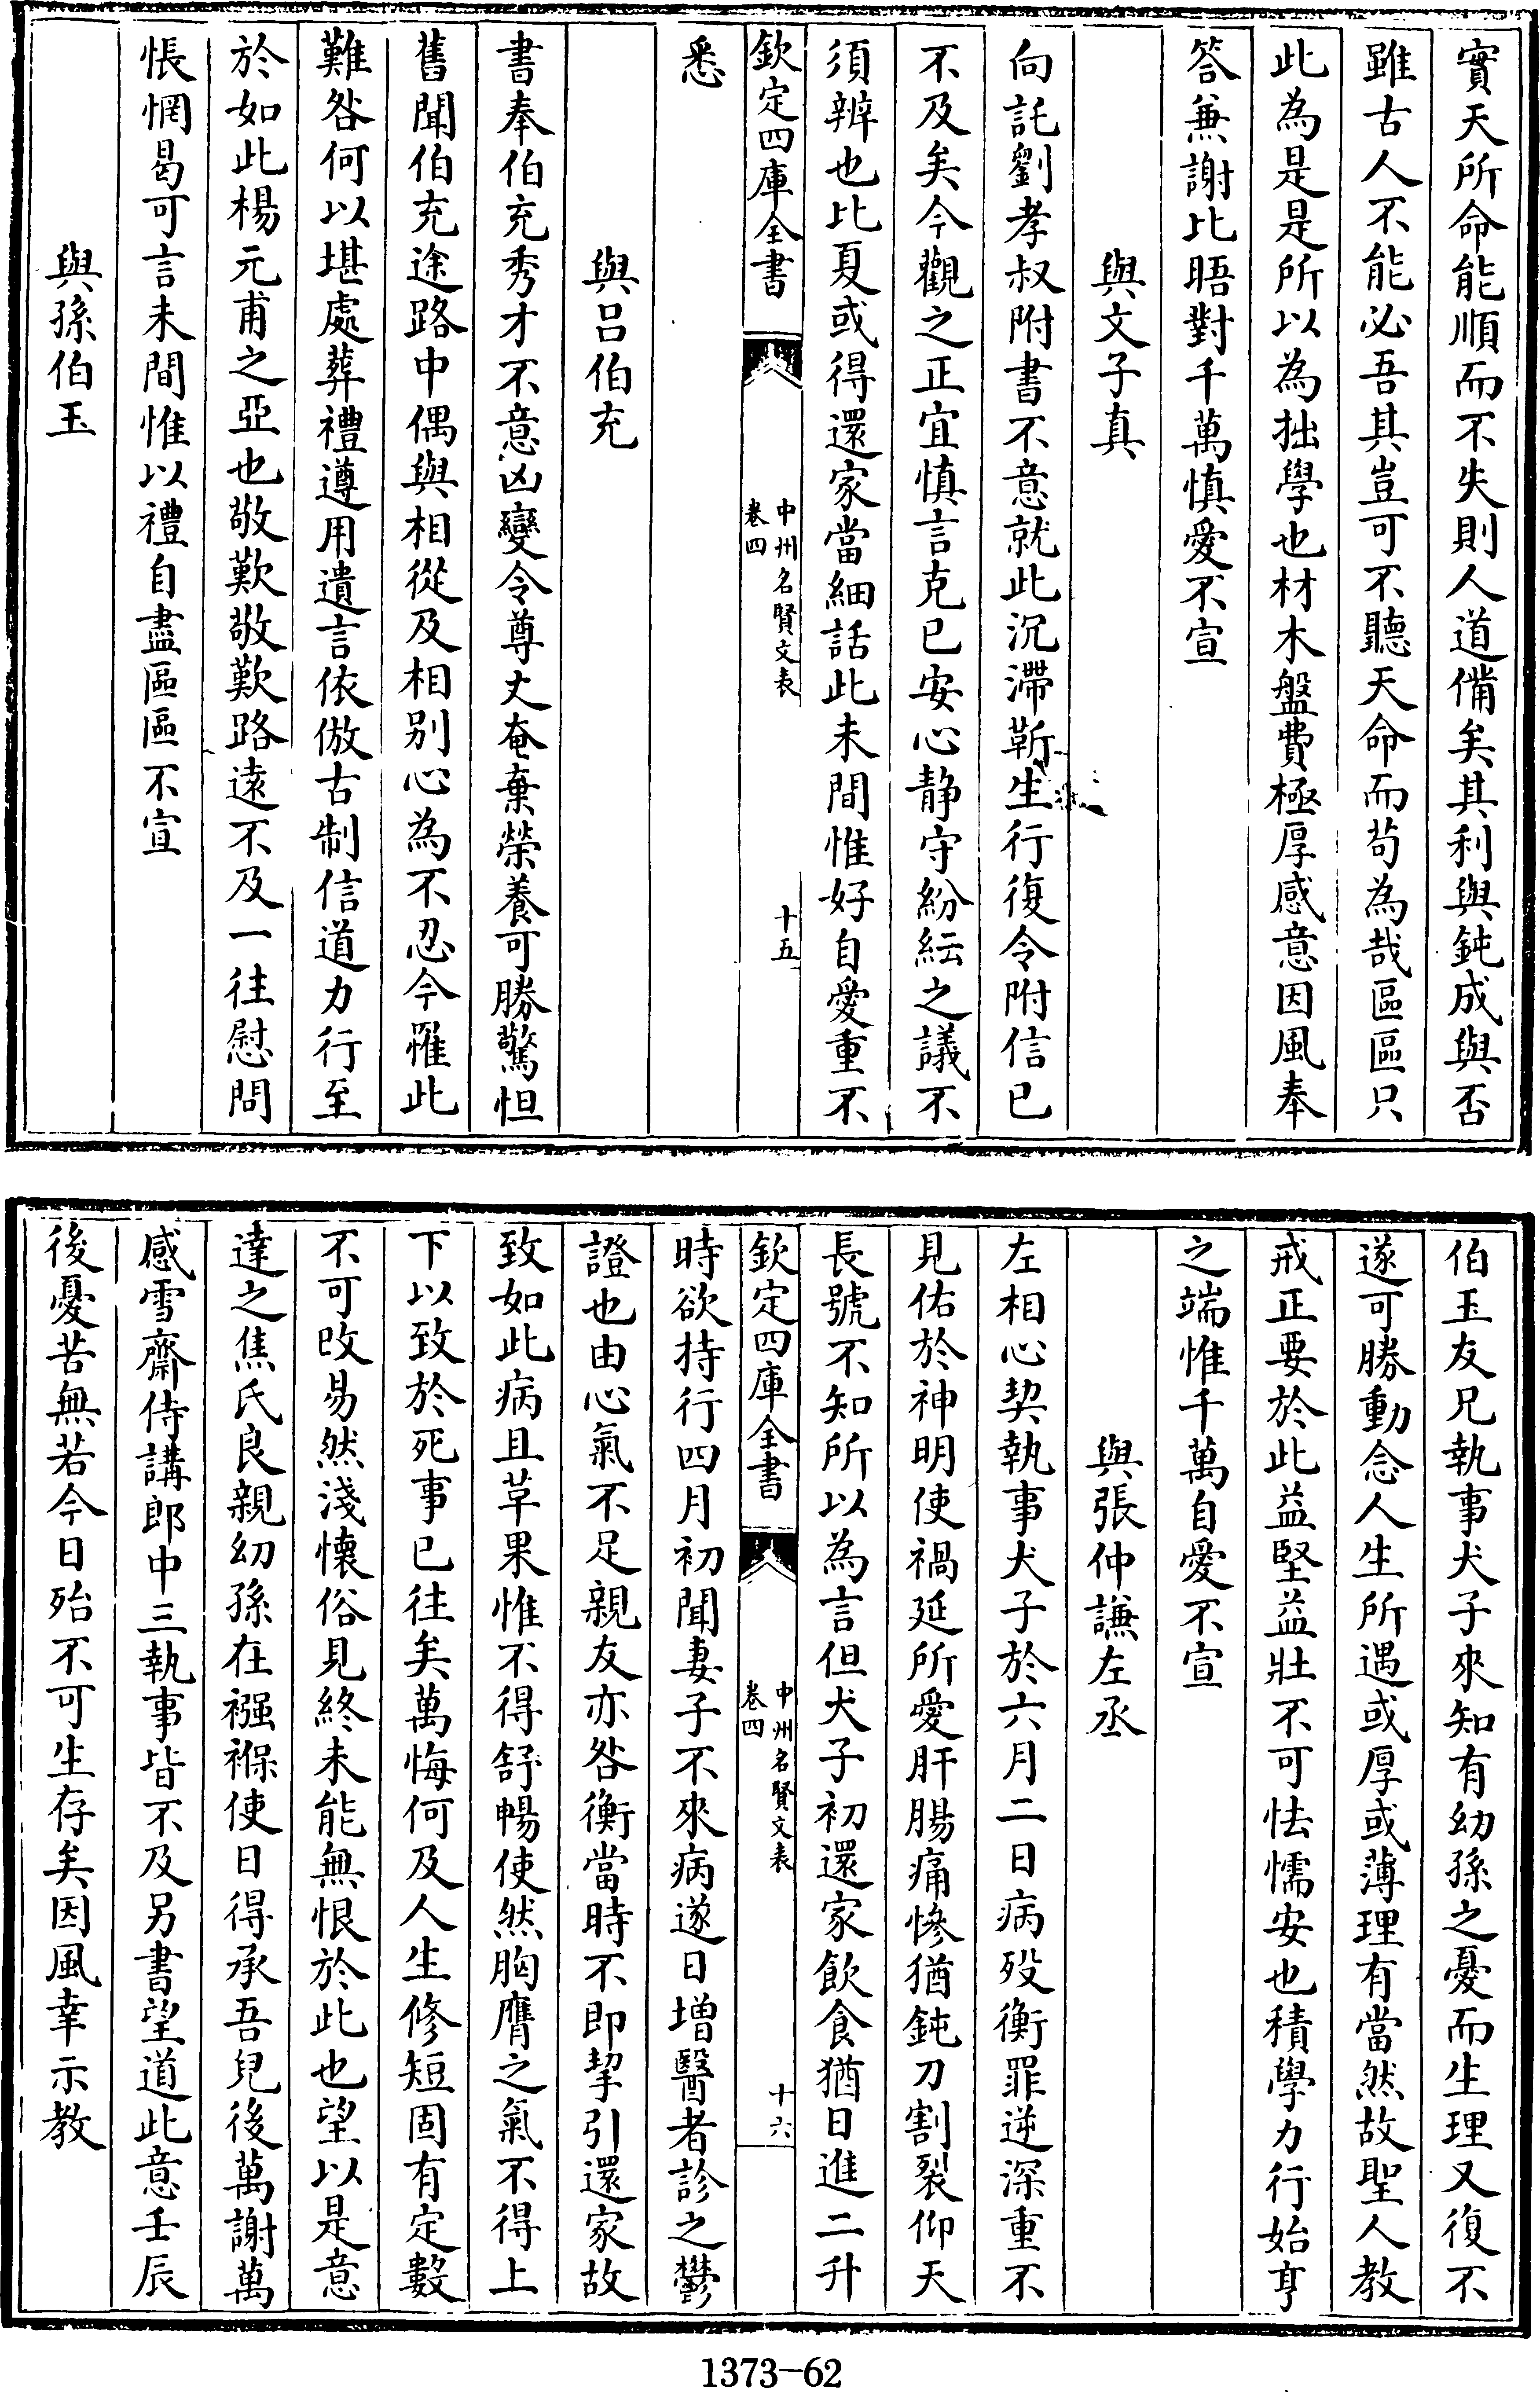 實天所命能順而不失則人道備矣其利與鈍成與否
雖古人不能必吾其豈可不聽天命而苟為哉區區只
此為是是所以為拙學也材木盤費極厚感意因風奉
答兼謝比晤對千萬慎愛不宣
與文子真
向託劉孝叔附書不意就此沉滯靳生行復令附信已
不及矣今觀之正宜慎言克己安心静守紛紜之議不
須辨也比夏或得還家當細話此未間惟好自愛重不
欽定四庫全書
中州名賢文表
卷四
十五
悉
與呂伯充
書奉伯充秀才不意凶變令尊丈奄棄榮養可勝驚怛
舊聞伯充途路中偶與相從及相别心為不忍今罹此
難咎何以堪處葬禮遵用遺言依倣古制信道力行至
於如此楊元甫之亞也敬歎敬歎路遠不及一往慰問
悵惘曷可言未間惟以禮自盡區區不宣
與孫伯玉
伯玉友兄執事犬子來知有幼孫之憂而生理又復不
遂可勝動念人生所遇或厚或薄理有當然故聖人教
戒正要於此益堅益壯不可怯懦安也積學力行始亨
之端惟千萬自愛不宣
與張仲謙左丞
左相心契執事犬子於六月二日病殁衡罪逆深重不
見佑於神明使禍延所愛肝腸痛慘猶鈍刀割裂仰天
長號不知所以為言但犬子初還家飲食猶日進二升
欽定四庫全書
中州名賢文表
卷四
十六
時欲持行四月初聞妻子不來病遂日增醫者診之鬱
證也由心氣不足親友亦咎衡當時不即挈引還家故
致如此病且革果惟不得舒暢使然胸膺之氣不得上
下以致於死事已往矣萬悔何及人生修短固有定數
不可改易然淺懷俗見終未能無恨於此也望以是意
達之焦氏良親幼孫在襁褓使日得承吾兒後萬謝萬
感雪齋侍講郎中三執事皆不及另書望道此意壬辰
後憂苦無若今日殆不可生存矣因風幸示教
1373-62